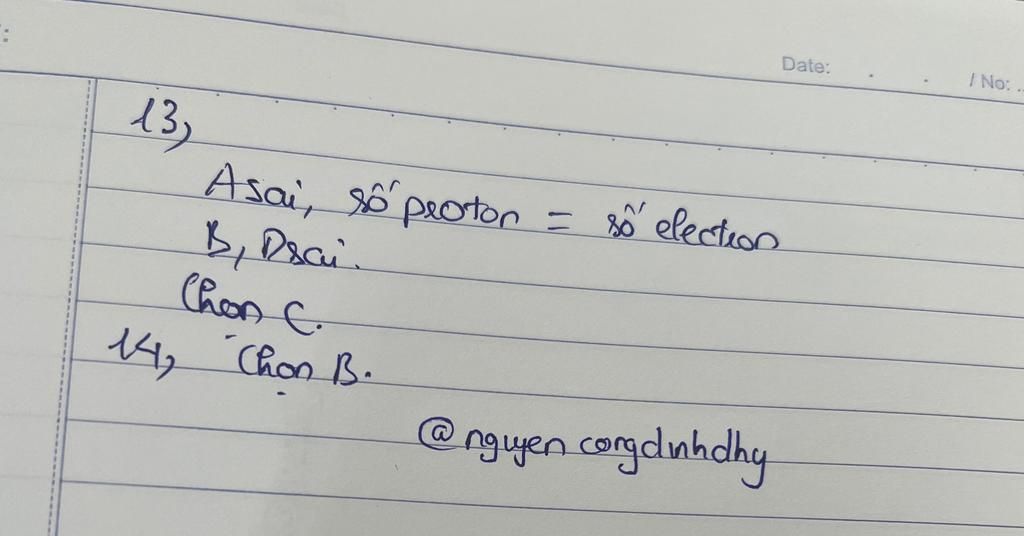 Date: . . / No: ..
13,
A sai, số proton = số election
B, D sai.
Chọn C.
14, Chọn B.
@nguyencongdinhdhy